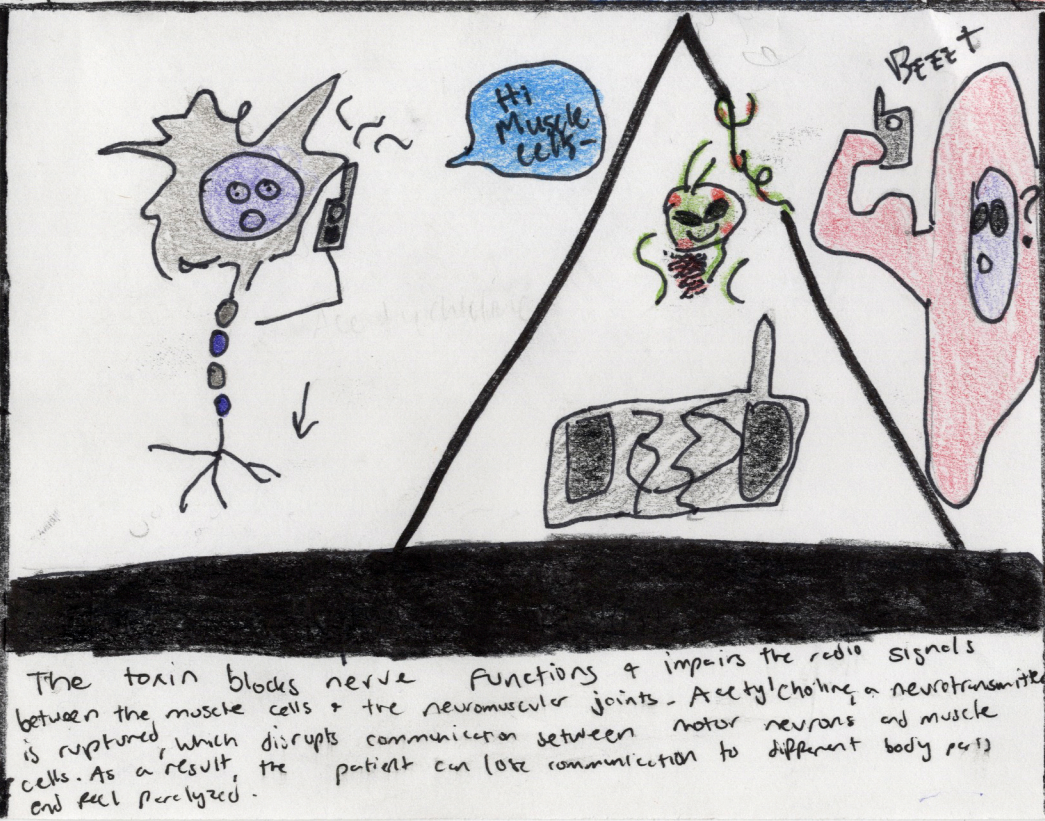 Hi
Muscle
cells-
BEEET
?
The toxin blocks nerve functions & impairs the radio signals
between the muscle cells & the neuromuscular joints. Acetylcholine, a neurotransmitter
is ruptured, which disrupts communication between motor neurons and muscle
cells. As a result, the patient can lose communication to different body parts
and feel paralyzed.